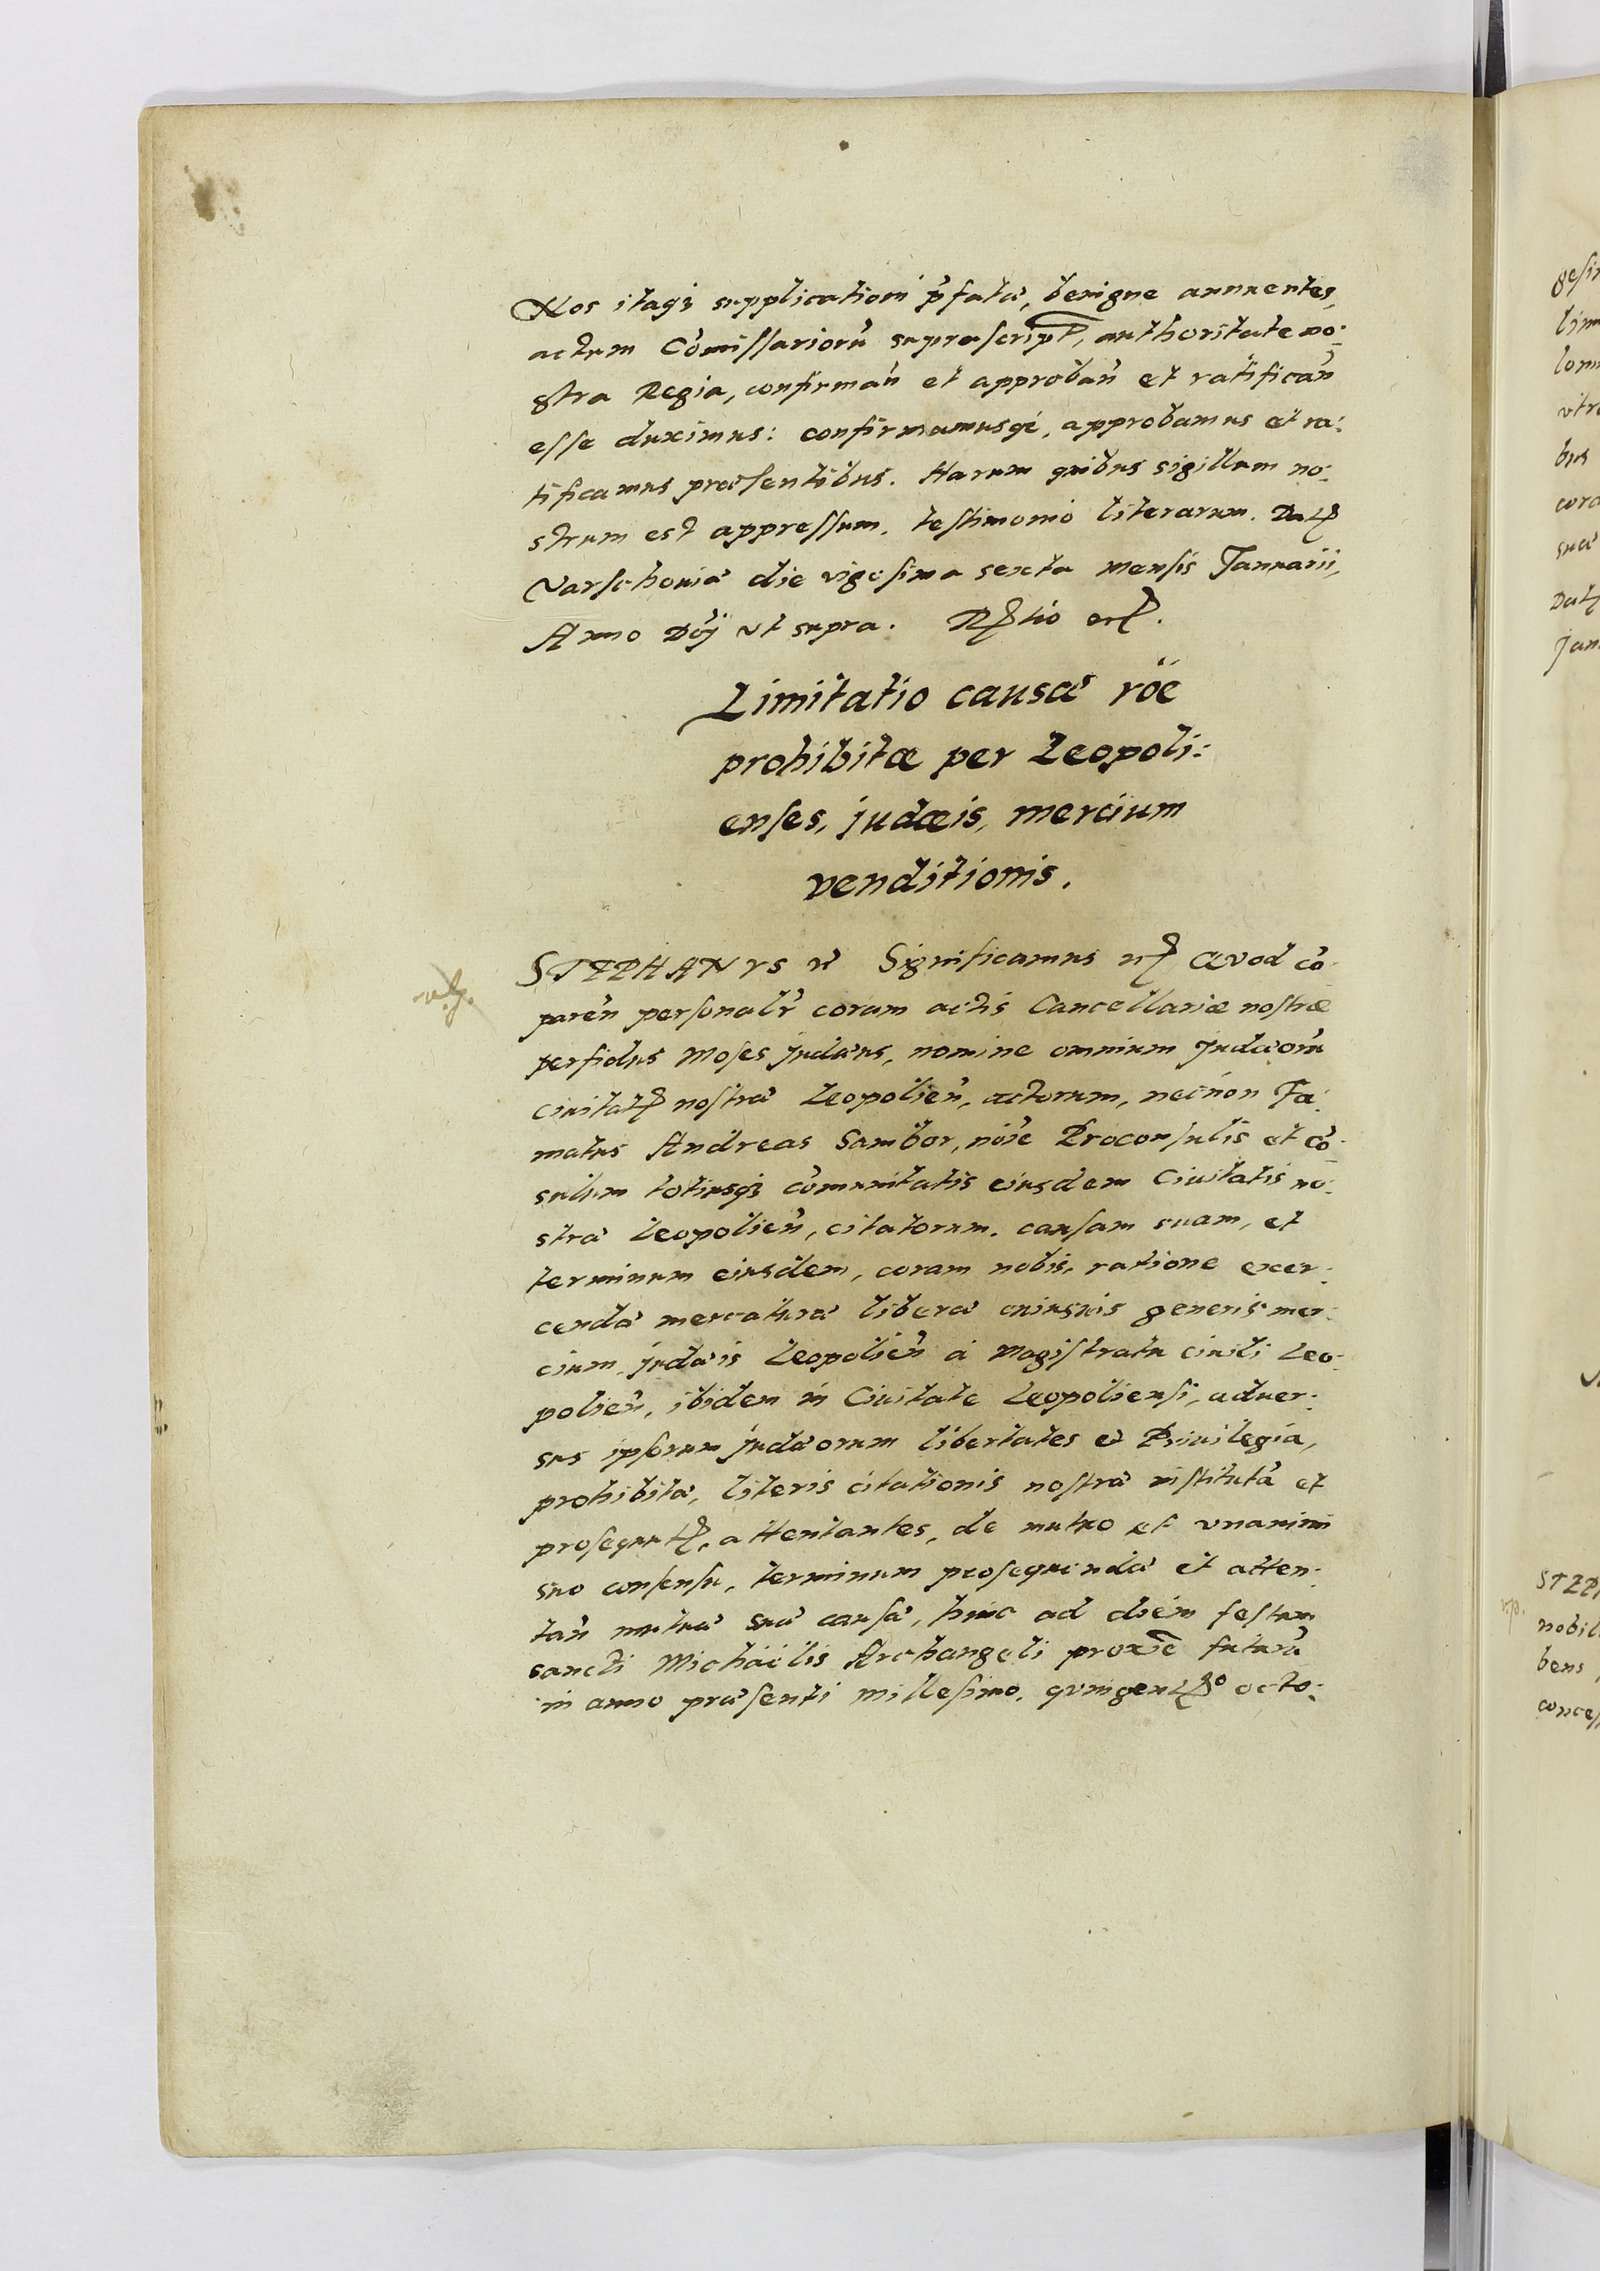 Nos itaqȝ supplicationi p̃fatæ, benigne annuentes,
actum Cõmissariorũ suprascript, authoritate no:
stra Regia, confirmañ et approbañ et ratificañ
esse duximus: confirmamusqȝ, approbamus et ra:
tificamus præsentibus. Harum quibus sigillum no:
strum est appressum, testimonio literarum. Dat
Varschouiæ die vigesima sexta mensis Januarii,
Anno Dõȷ ut supra.
Limitatio causæ rõe
prohibitæ per Leopoli:
enses, judæis, mercium
venditionis.
STEPHANVS
Significamus Qvod cõ
pareñ personalr̃ coram actis Cancellariæ nostræ
perfidus Moses Judæus, nomine omnium Judæorũ
ciuitat nostræ Leopolieñ, actorum, necnon Fa:
matus Andreas Sambor, nõie Proconsulis et cõ
sulum totiusqȝ cõmunitatis eiusdem Ciuitatis no:
stræ Leopolieñ, citatorum. causam suam, et
terminum eiusdem, coram nobis, ratione exer:
cendæ mercaturæ liberæ cuiusuis generis mer:
cium, judæis Leopolieñ a Magistratu ciuili Leo:
polieñ, ibidem in Ciuitate Leopoliensi, aduer:
sus ipsorum Judæorum libertates et Priuilegia,
prohibitæ, literis citationis nostræ institutæ et
prosequut, attentantes, de mutuo et vnanimi
suo consensu, terminum prosequendæ et atten:
tañ mutuæ suæ causæ, hinc ad diem festum
sancti Michaëlis Archangeli proxie futurũ
in anno præsenti millesimo, quingent° octo:
gesi
lim
lom
vtr
bus
cora
suæ
Dat
Jan
STEP
nobil
bens
conces